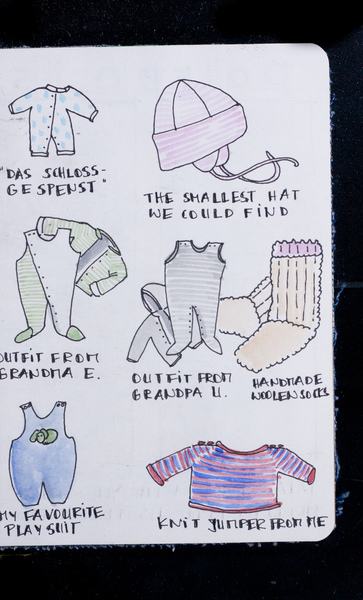 "DAS SCHLOSS-
GESPENST"
THE SMALLEST HAT
WE COULD FIND
OUTFIT FROM
GRANDMA E.
OUTFIT FROM
GRANDPA U.
HANDMADE
WOOLEN SOCKS
MY FAVOURITE
PLAY SUIT
KNIT JUMPER FROM ME